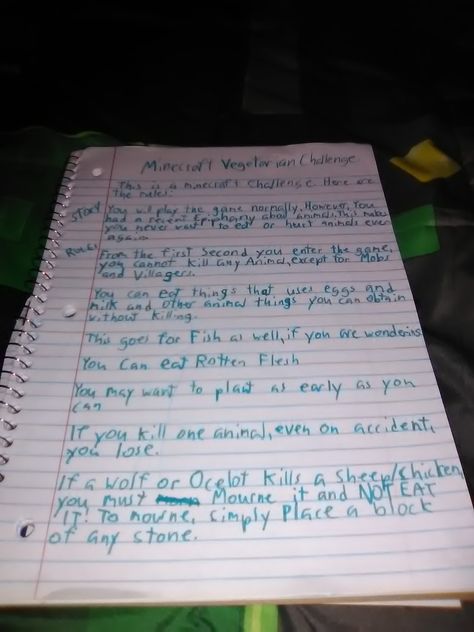 Minecraft Vegetarian Challenge
This is a minecraft Challenge. Here are
the rules:
STORY You will play the game normally. However, You
had a recent Epiphany about animals. This makes
you never want to eat or hurt animals ever
again.
RULES From the first second you enter the game,
you cannot kill any Animal, except for Mobs
and Villagers.
You can eat things that uses eggs and
milk and other animal things you can obtain
without killing.
This goes for Fish as well, if you are wondering
You Can eat Rotten Flesh
You may want to plant as early as you
can
If you kill one animal, even on accident,
you lose.
If a wolf or Ocelot kills a sheep/chicken,
you must Mourne it and NOT EAT
IT. To mourne, simply place a block
of any stone.